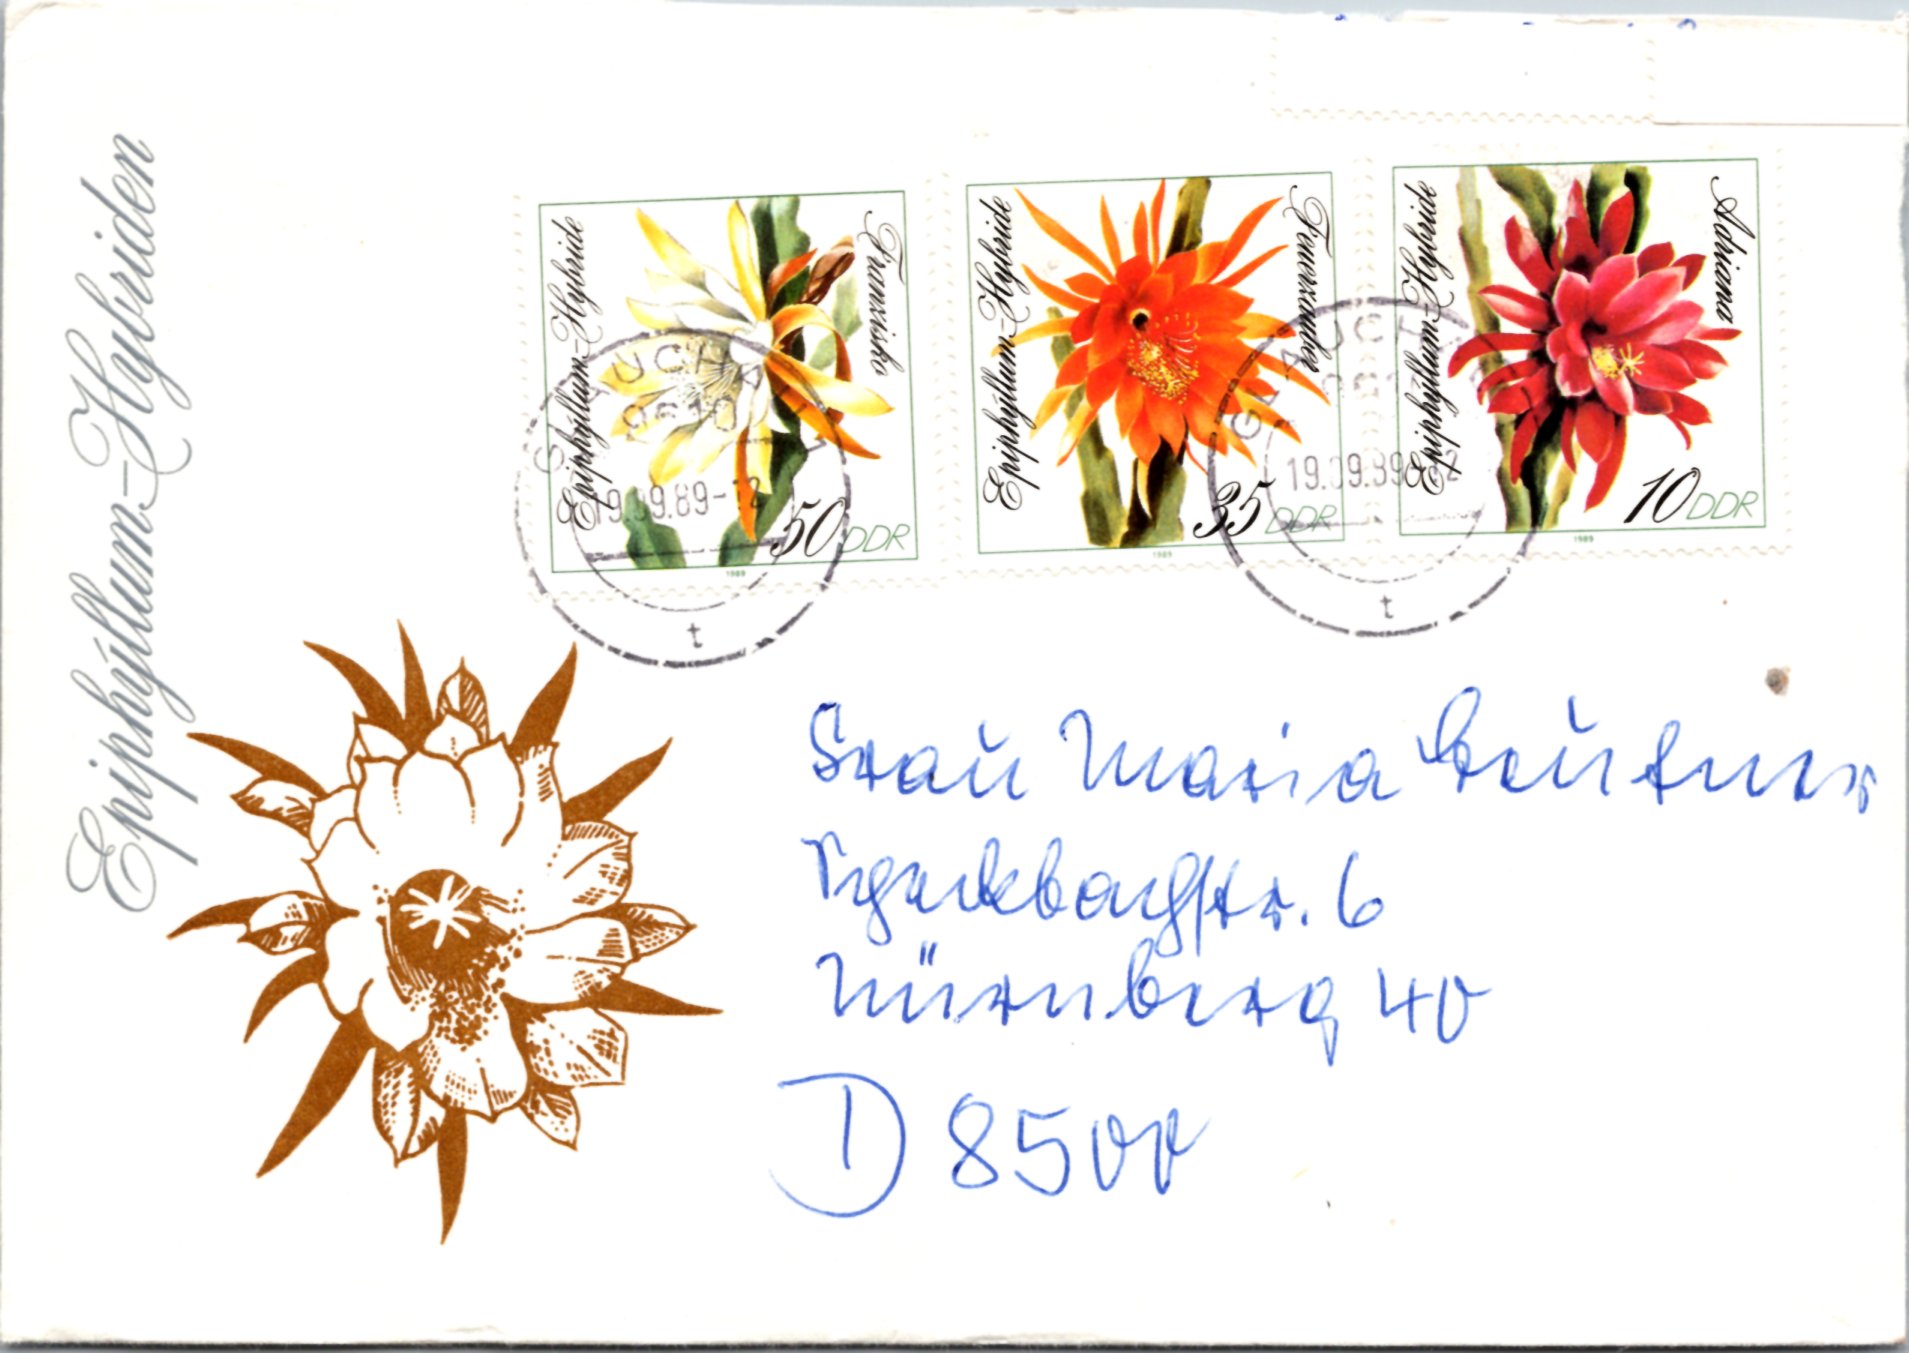 Epiphýllum-Hybriden
Epiphýllum-Hybride
Franzisko
50 DDR
1989
Epiphýllum-Hybride
Feuerzauber
35 DDR
1989
Epiphýllum-Hybride
Adriana
10 DDR
1989
GLAUCHAU
9610
19.09.89-12
t
GLAUCHAU
19.09.89-12
t
Frau Maria
6
Nürnberg 40
D 8500